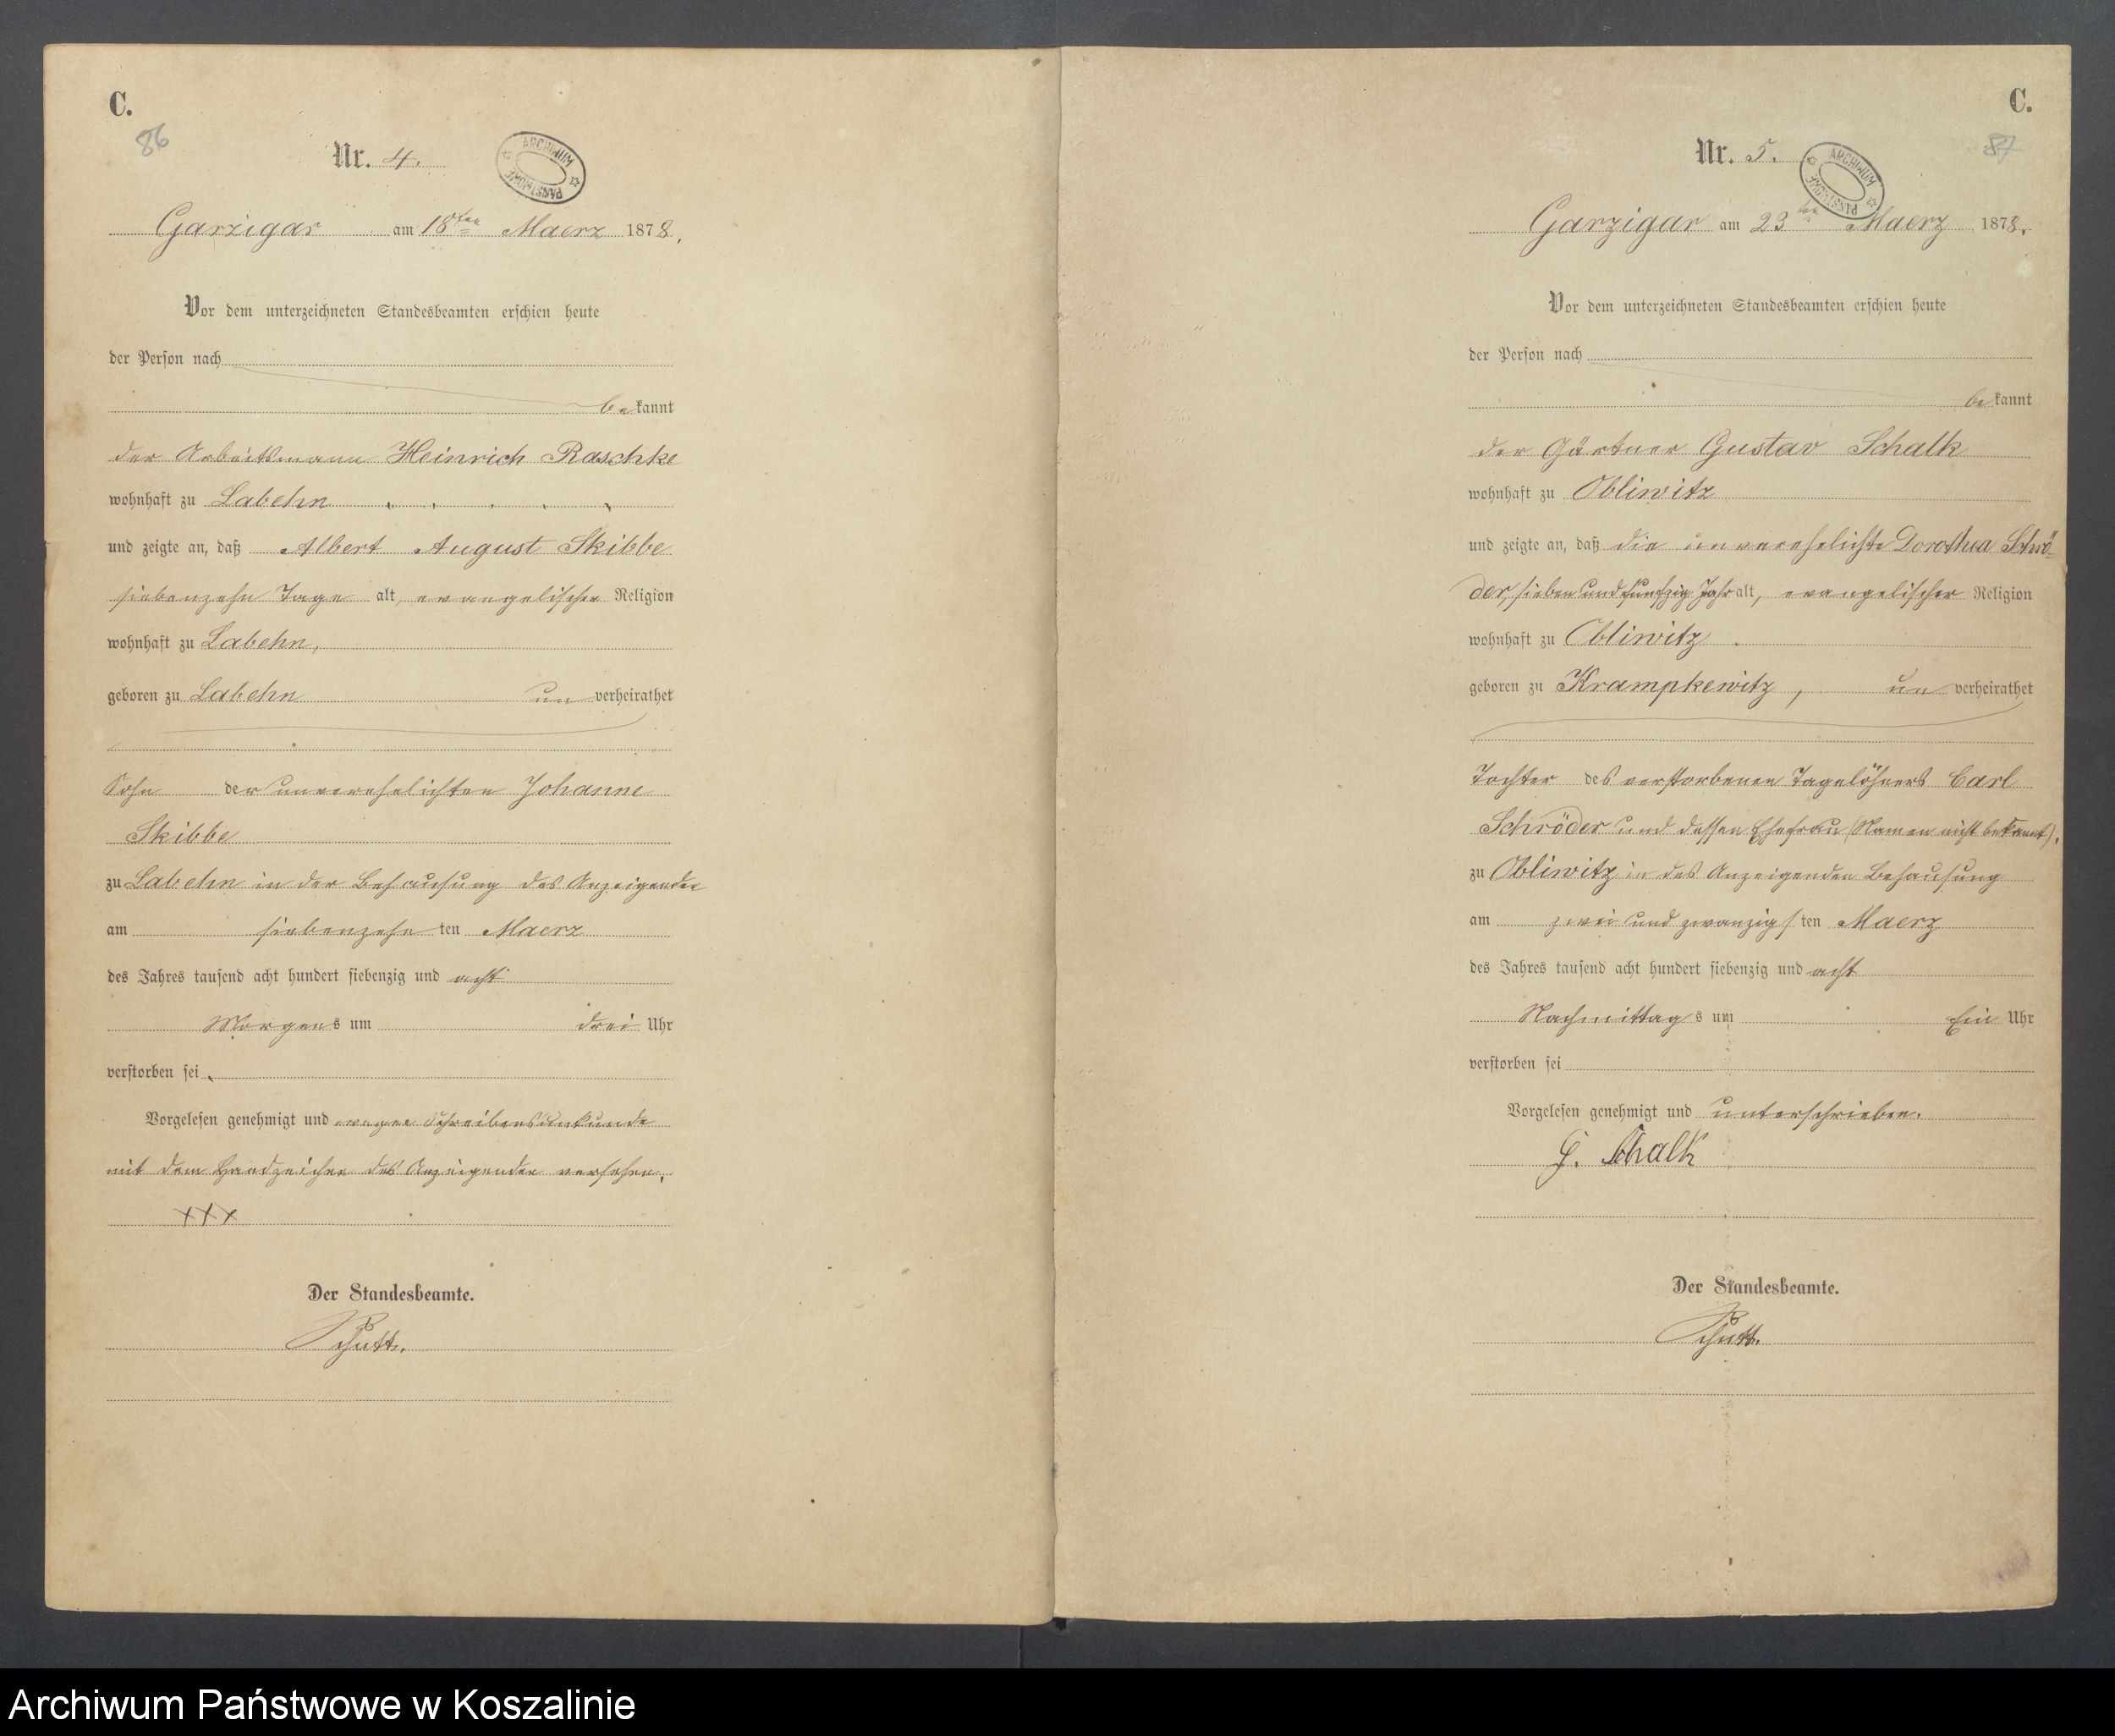 C.
86
Nr. 4.
ARCHIWUM PAŃSTWOWE
Garzigar am 18ten Maerz 1878.
Vor dem unterzeichneten Standesbeamten erschien heute
der Person nach
bekannt
der Arbeitsmann Heinrich Raschke
wohnhaft zu Labehn
und zeigte an, daß Albert August Skibbe
siebenzehn Tage alt, evangelischer Religion
wohnhaft zu Labehn,
geboren zu Labehn unverheirathet
Sohn der unverehelichten Johanne
Skibbe
zu Labehn in der Behausung des Anzeigenden
am siebenzehnten Maerz
des Jahres tausend acht hundert siebenzig und acht
Morgens um drei Uhr
verstorben sei.
Vorgelesen genehmigt und wegen Schreibensunkunde
mit dem Handzeichen des Anzeigenden versehen.
+++
Der Standesbeamte.
C.
87
Nr. 5.
ARCHIWUM PAŃSTWOWE
Garzigar am 23ten Maerz 1878.
Vor dem unterzeichneten Standesbeamten erschien heute
der Person nach
bekannt
der Gärtner Gustav Schalk
wohnhaft zu Obliwitz
und zeigte an, daß die unverehelichte Dorothea Schrö-
der, sieben und funfzig Jahr alt, evangelischer Religion
wohnhaft zu Obliwitz
geboren zu Krampkewitz, unverheirathet
Tochter des verstorbenen Tagelöhners Carl
Schröder und dessen Ehefrau (Namen nicht bekannt).
zu Obliwitz in des Anzeigenden Behausung
am zwei und zwanzigsten Maerz
des Jahres tausend acht hundert siebenzig und acht
Nachmittags um Ein Uhr
verstorben sei
Vorgelesen genehmigt und unterschrieben.
G. Schalk
Der Standesbeamte.
Archiwum Państwowe w Koszalinie